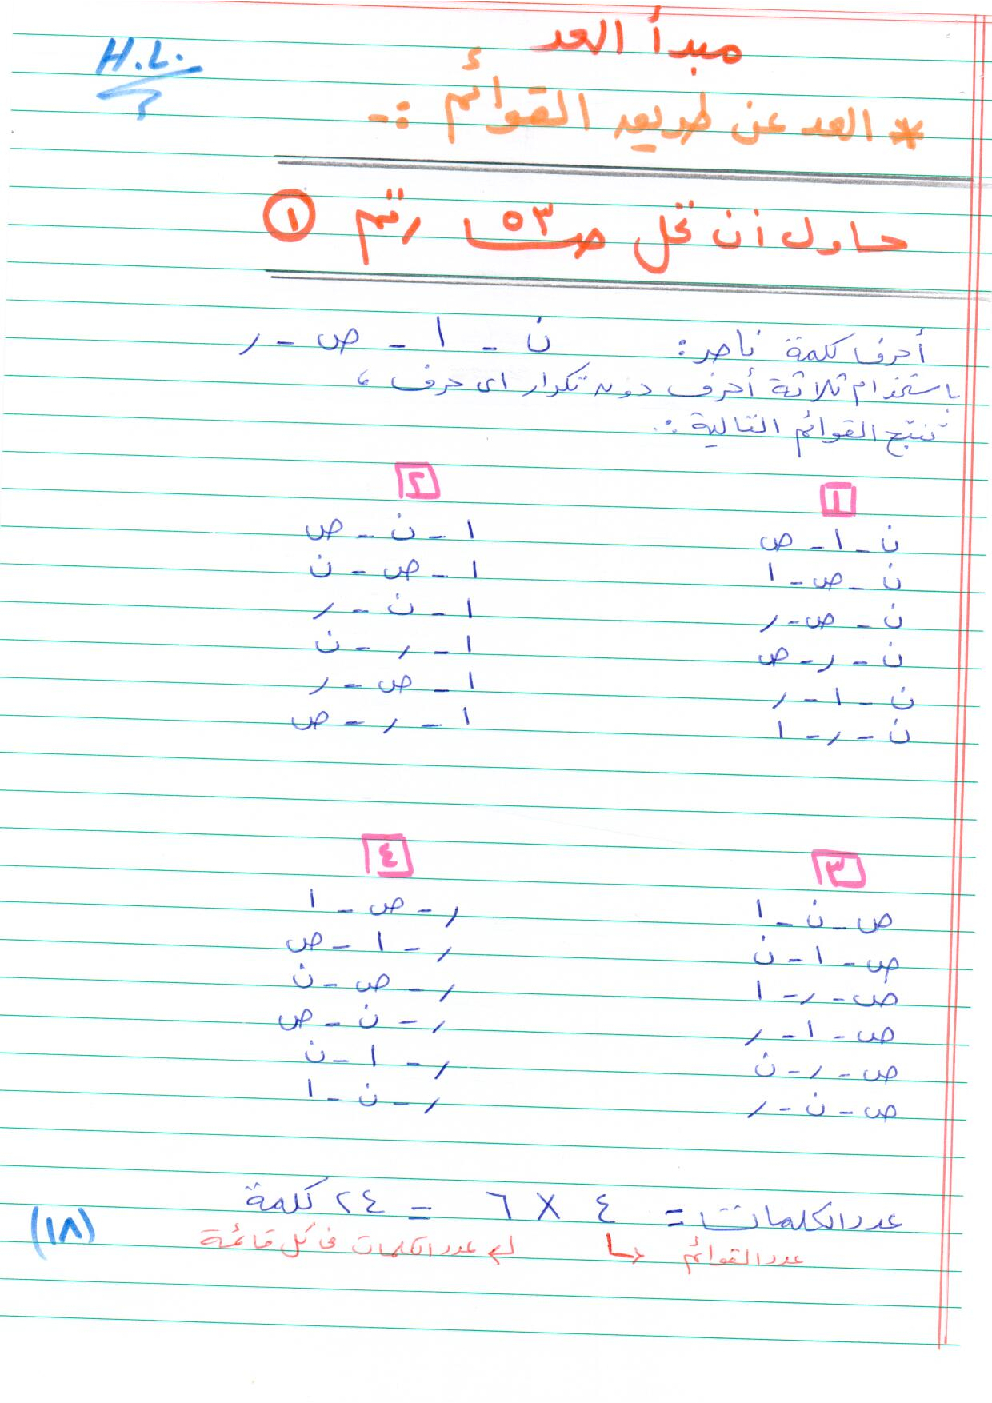 مبدأ العد
H.L.
* العد عن طريق القوائم :-
حاول أن تحل صـ ٥٣ رقم ①
أحرف كلمة ناصر: ن - ا - ص - ر
باستخدام ثلاثة أحرف دون تكرار اى حرف ،
تنتج القوائم التالية :.
١
ن - ا - ص
ن - ص - ا
ن - ص - ر
ن - ر - ص
ن - ا - ر
ن - ر - ا
٢
ا - ن - ص
ا - ص - ن
ا - ن - ر
ا - ر - ن
ا - ص - ر
ا - ر - ص
٣
ص - ن - ا
ص - ا - ن
ص - ر - ا
ص - ا - ر
ص - ر - ن
ص - ن - ر
٤
ر - ص - ا
ر - ا - ص
ر - ص - ن
ر - ن - ص
ر - ا - ن
ر - ن - ا
عدد الكلمات = ٤ × ٦ = ٢٤ كلمة
عدد القوائم عدد الكلمات فى كل قائمة
(١٨)